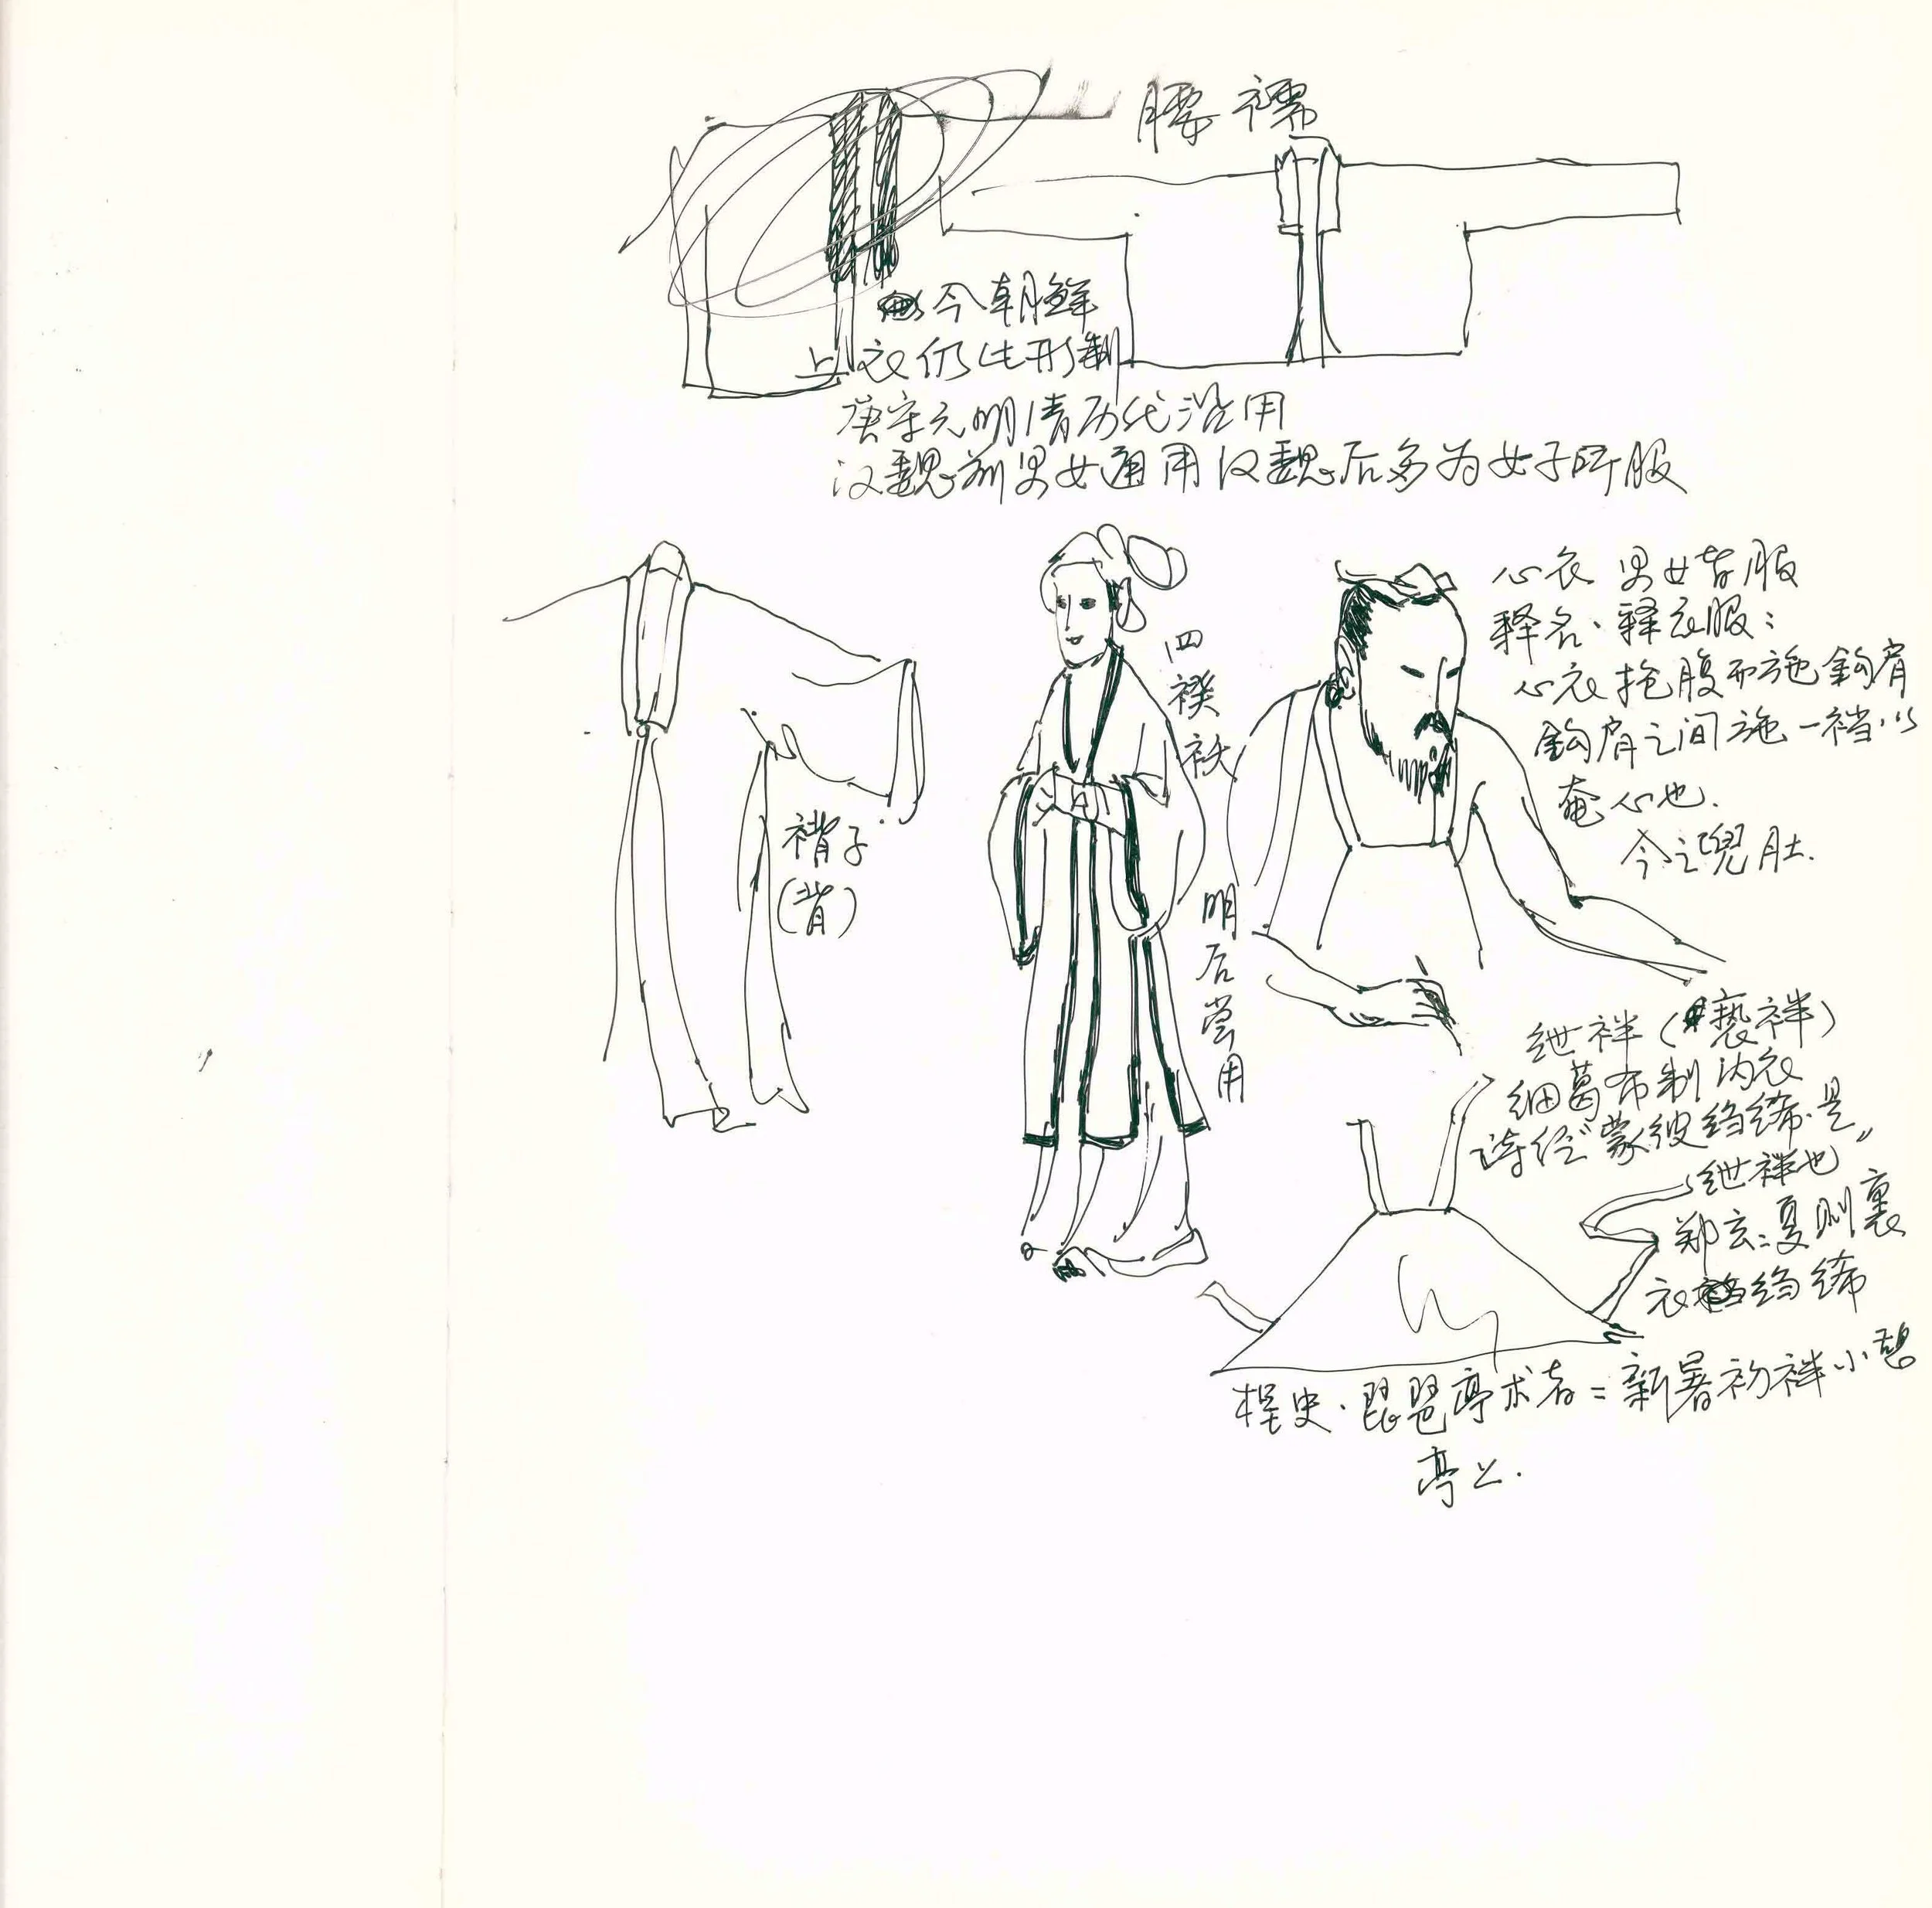 腰襦
今朝鲜
上衣仍此形制
唐宋元明清历代沿用
汉魏前男女通用汉魏后多为女子所服
心衣 男女皆服
释名·释衣服:
心衣抱腹而施鉤肩
鉤肩之间施一裆以
奄心也.
今之兜肚.
四䙆袄
明后尝用
褙子
(背)
绁袢(亵袢)
细葛布制内衣
诗经“蒙彼绉絺·是
绁袢也”
郑玄:夏则裏
衣绉絺
桯史·琵琶亭术者=新暑初袢小憩
亭上.